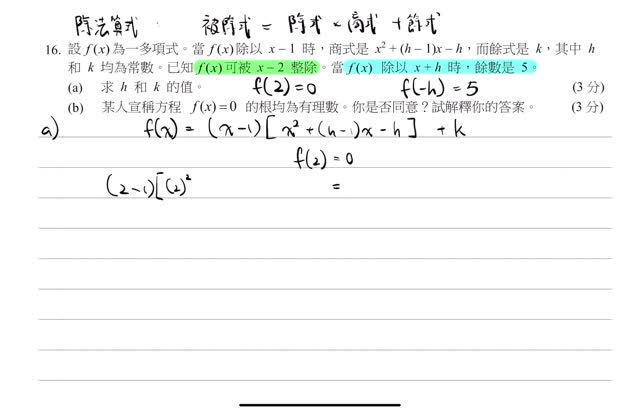 除法算式 被除式 = 除式 × 商式 + 餘式
16. 設 f(x) 為一多項式。當 f(x) 除以 x − 1 時，商式是 x² + (h − 1)x − h，而餘式是 k，其中 h
和 k 均為常數。已知 f(x) 可被 x − 2 整除。當 f(x) 除以 x + h 時，餘數是 5。
(a) 求 h 和 k 的值。 f(2) = 0 f(-h) = 5 (3 分)
(b) 某人宣稱方程 f(x) = 0 的根均為有理數。你是否同意？試解釋你的答案。 (3 分)
a) f(x) = (x-1)[x² + (h-1)x - h] + k
f(2) = 0
(2-1)[(2)² =